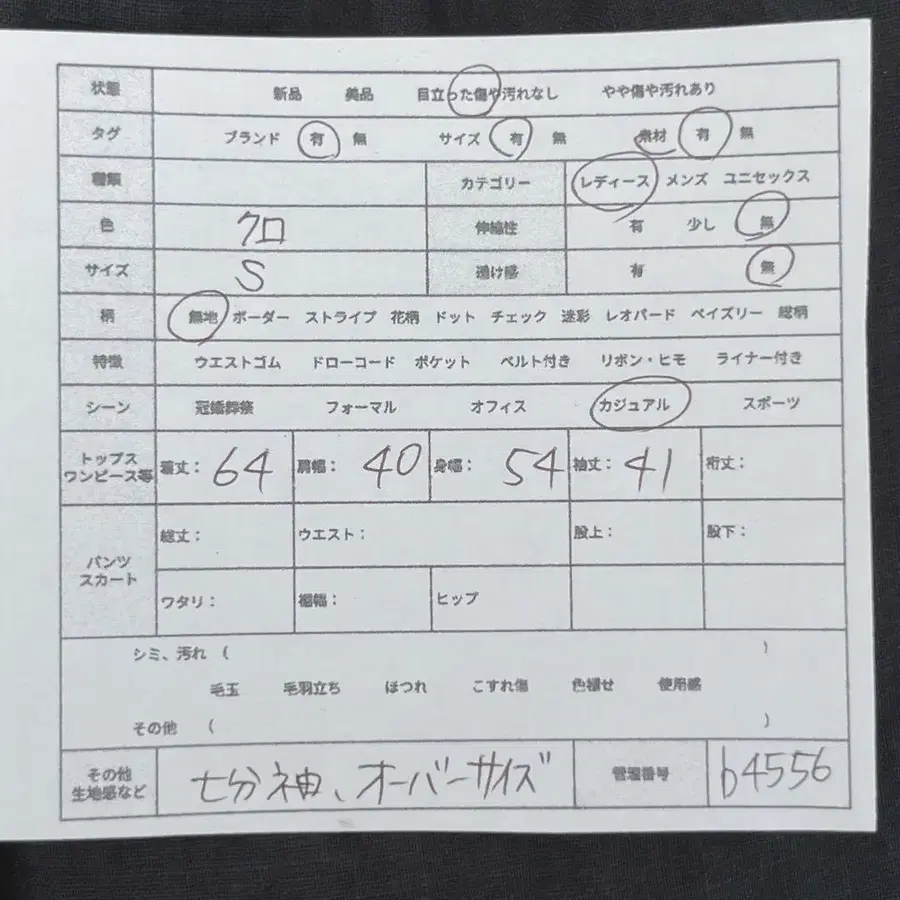 状態 新品 美品 目立った傷や汚れなし やや傷や汚れあり
タグ ブランド 有 無 サイズ 有 無 素材 有 無
種類 カテゴリー レディース メンズ ユニセックス
色 クロ 伸縮性 有 少し 無
サイズ S 透け感 有 無
柄 無地 ボーダー ストライプ 花柄 ドット チェック 迷彩 レオパード ペイズリー 総柄
特徴 ウエストゴム ドローコード ポケット ベルト付き リボン・ヒモ ライナー付き
シーン 冠婚葬祭 フォーマル オフィス カジュアル スポーツ
トップス
ワンピース等 着丈: 64 肩幅: 40 身幅: 54 袖丈: 41 裄丈:
パンツ
スカート
総丈: ウエスト: 股上: 股下:
ワタリ: 裾幅: ヒップ
シミ、汚れ ( )
毛玉 毛羽立ち ほつれ こすれ傷 色褪せ 使用感
その他 ( )
その他
生地感など 七分袖、オーバーサイズ 管理番号 b4556